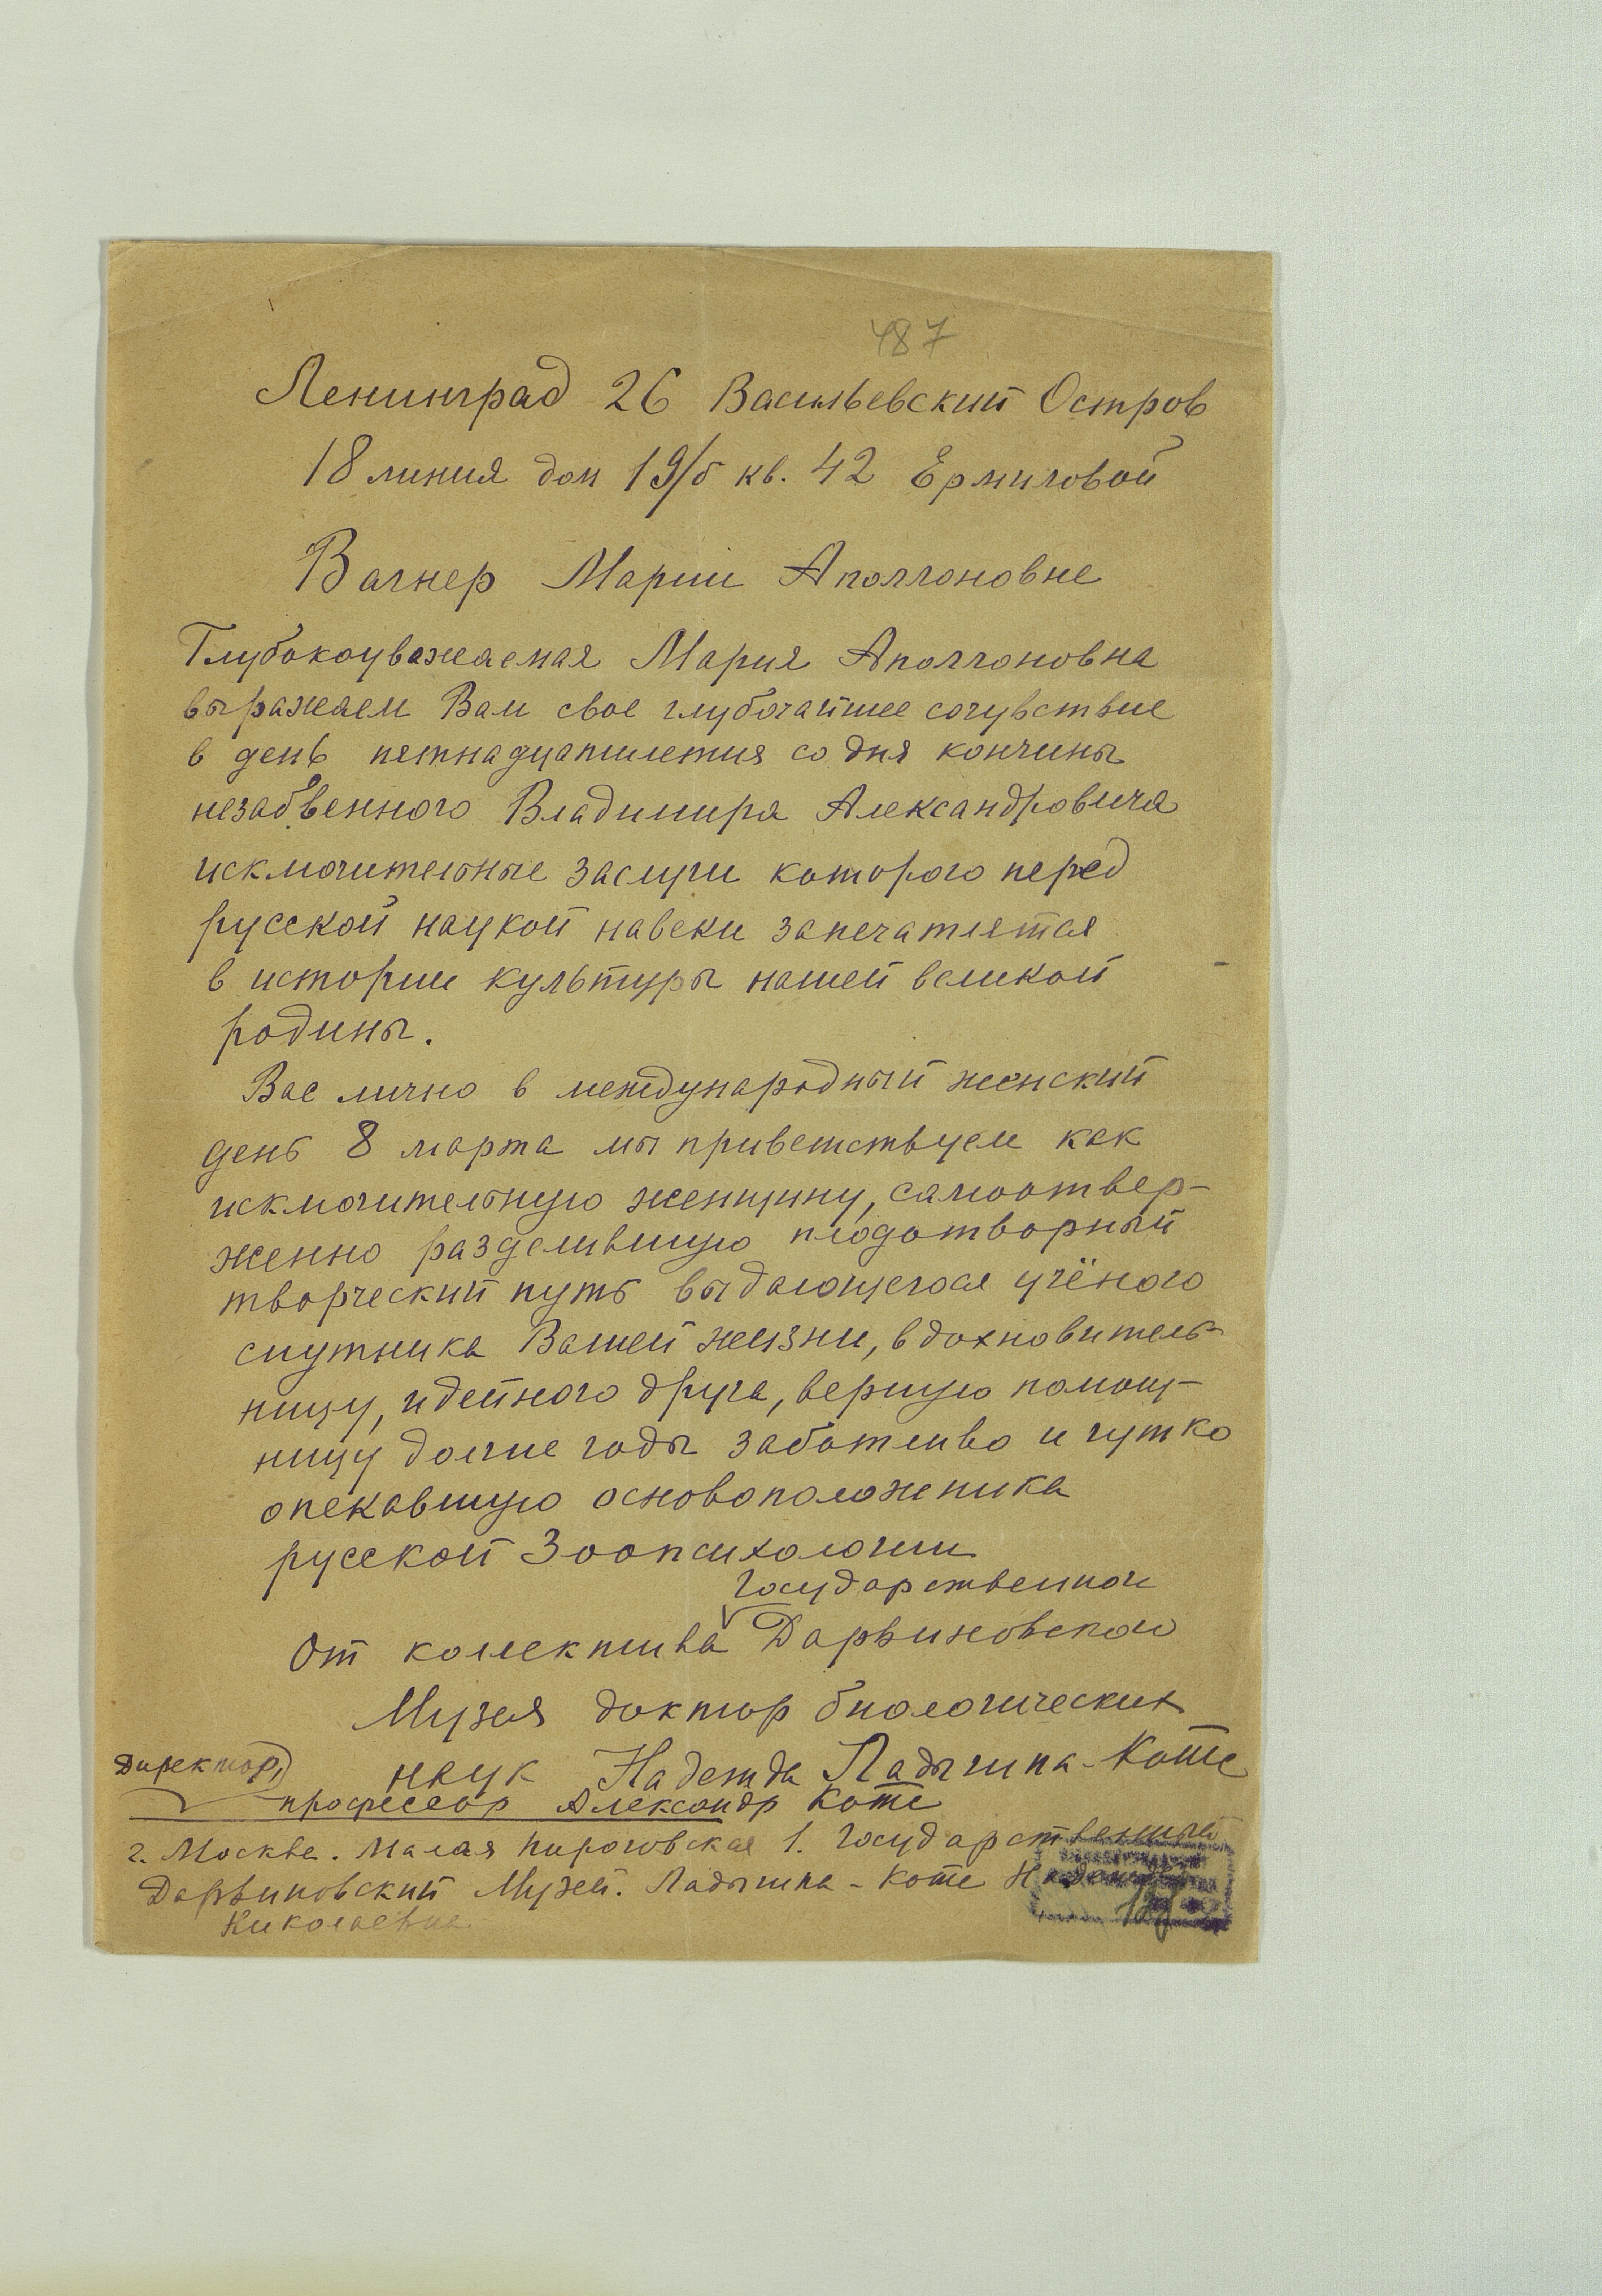 487
Ленинград 26 Васильевский Остров
18 линия дом 19/б кв. 42 Ермиловой
Вагнер Марии Аполлоновне
Глубокоуважаемая Мария Аполлоновна
выражаем Вам свое глубочайшее сочувствие
в день пятнадцатилетия со дня кончины
незабвенного Владимира Александровича
исключительные заслуги которого перед
русской наукой навеки запечатлятся
в истории культуры нашей великой
родины.
Вас лично в международный женский
день 8 марта мы приветствуем как
исключительную женщину, самоотвер-
женно разделившую плодотворный
творческий путь выдающегося учёного
спутника Вашей жизни, вдохновитель-
ницу, идейного друга, верную помощ-
ницу долгие годы заботливо и чутко
опекавшую основоположника
русской Зоопсихологии
Государственного
От коллектива Дарвиновского
Музея доктор биологических
наук Надежда Ладыгина-Котс
Директор,
профессор Александр Котс
г. Москва. Малая Пироговская 1. Государственный
Дарвиновский Музей. Ладыгина-Котс Надежда
Николаевна